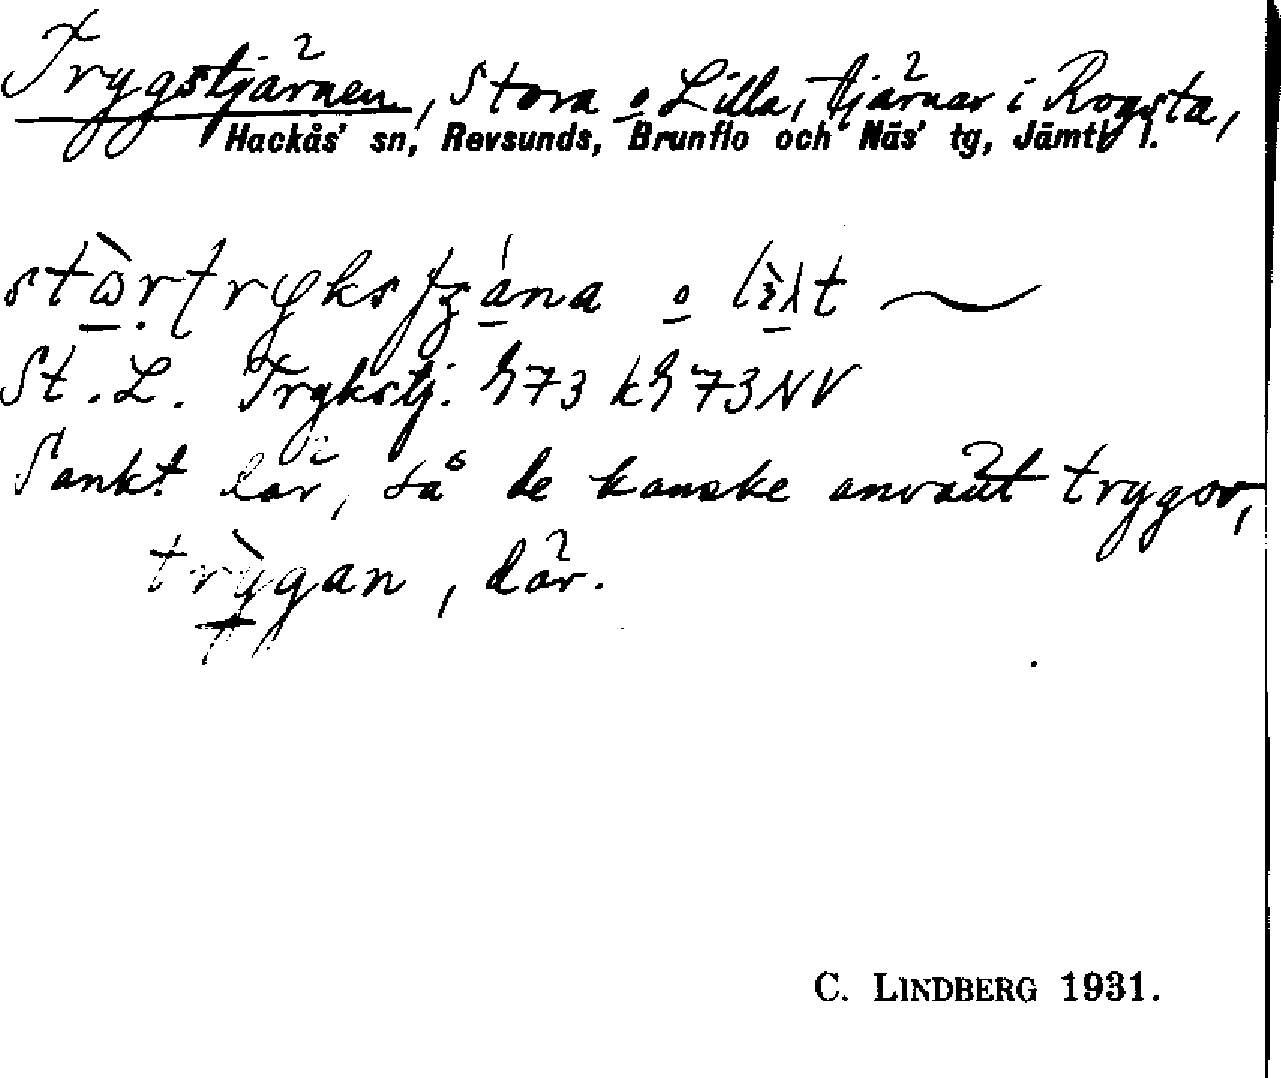 Trygstjärnen, Stora o Lilla, tjärnar i Rogsta,
Hackås' sn, Revsunds, Brunflo och Näs' tg, Jämtl l.
o
St. L. Trykstj. h73 kh 73NV
Sankt där, så de kanske använt trygor,
trỳgan, där.
C. LINDBERG 1931.